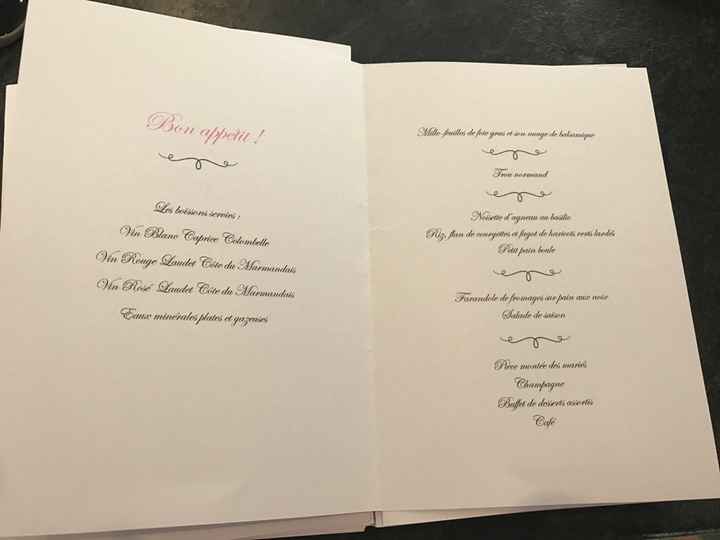 Bon appétit !
Les boissons servies :
Vin Blanc Caprice Colombelle
Vin Rouge Laudet Côte du Marmandais
Vin Rosé Laudet Côte du Marmandais
Eaux minérales plates et gazeuses
Mille-feuilles de foie gras et son nuage de balsamique
Trou normand
Noisette d'agneau au basilic
Riz, flan de courgettes et fagot de haricots verts lardés
Petit pain boule
Farandole de fromages sur pain aux noix
Salade de saison
Pièce montée des mariés
Champagne
Buffet de desserts assortis
Café